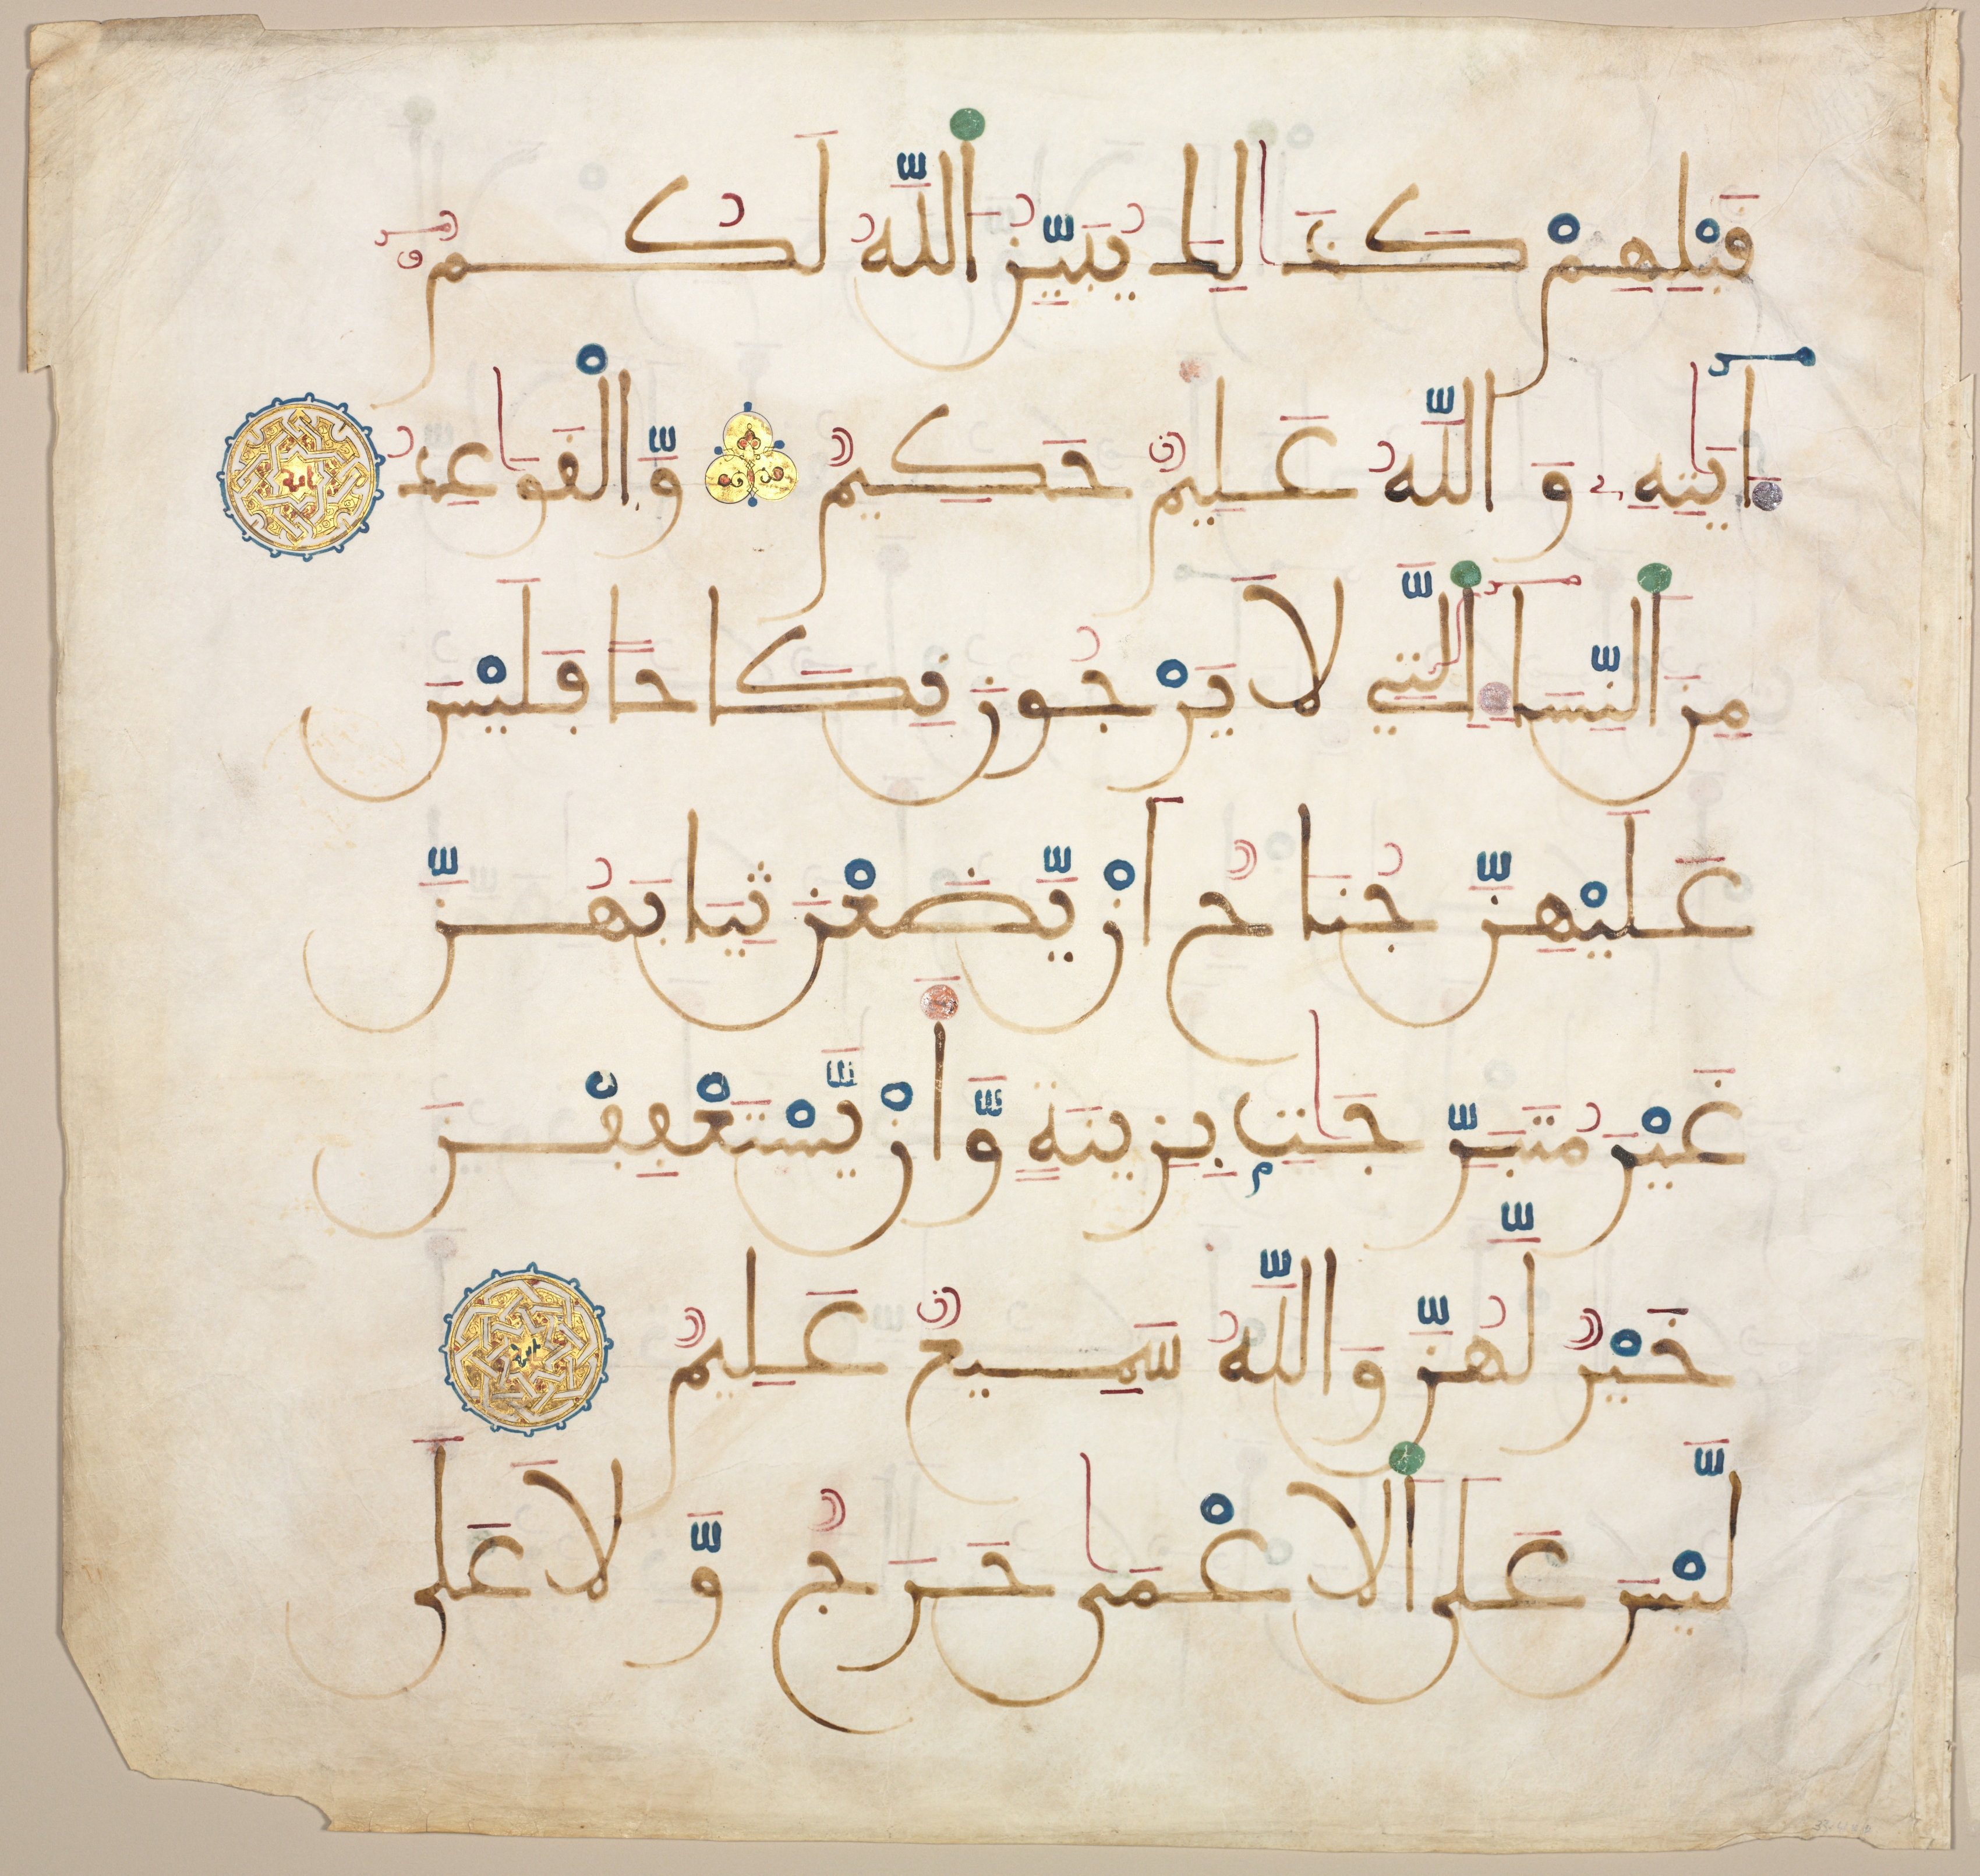 قَبْلِهِمْ كَذَٰلِكَ يُبَيِّنُ اَ۬للَّهُ لَكُمُۥٓ
ءَايَٰتِهِۦ وَاللَّهُ عَلِيمٌ حَكِيمٌ وَّالْقَوَٰعِدُ
مِنَ اَ۬لنِّسَآءِ اِ۬لَّٰتِي لَا يَرْجُونَ نِكَاحاً فَلَيْسَ
عَلَيْهِنَّ جُنَاحٌ أَنْ يَّضَعْنَ ثِيَابَهُنَّ
غَيْرَ مُتَبَرِّجَٰتِۢ بِزِينَةٍ وَّأَنْ يَّسْتَعْفِفْنَ
خَيْرٌ لَّهُنَّ وَاللَّهُ سَمِيعٌ عَلِيمٌ
لَّيْسَ عَلَى اَ۬لَاعْمَىٰ حَرَجٌ وَّلَا عَلَى